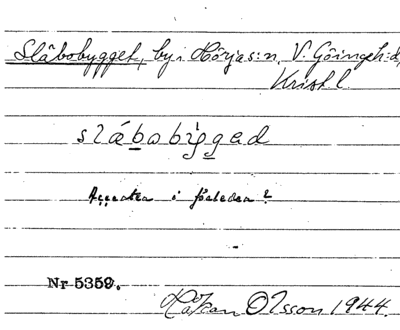 Slåbobygget, by i Hörjas:n, V. Göingeh:d,
Kristl.
slábobýgəd
Accenten i förleden?
Nr 5359.
Håkan Olsson 1944.